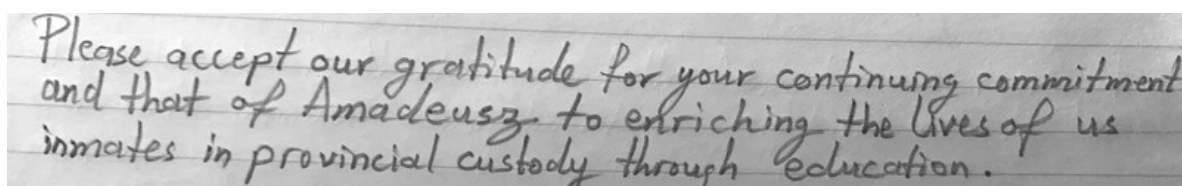 Please accept our gratitude for your continuing commitment
and that of Amadeusz to enriching the lives of us
inmates in provincial custody through education.